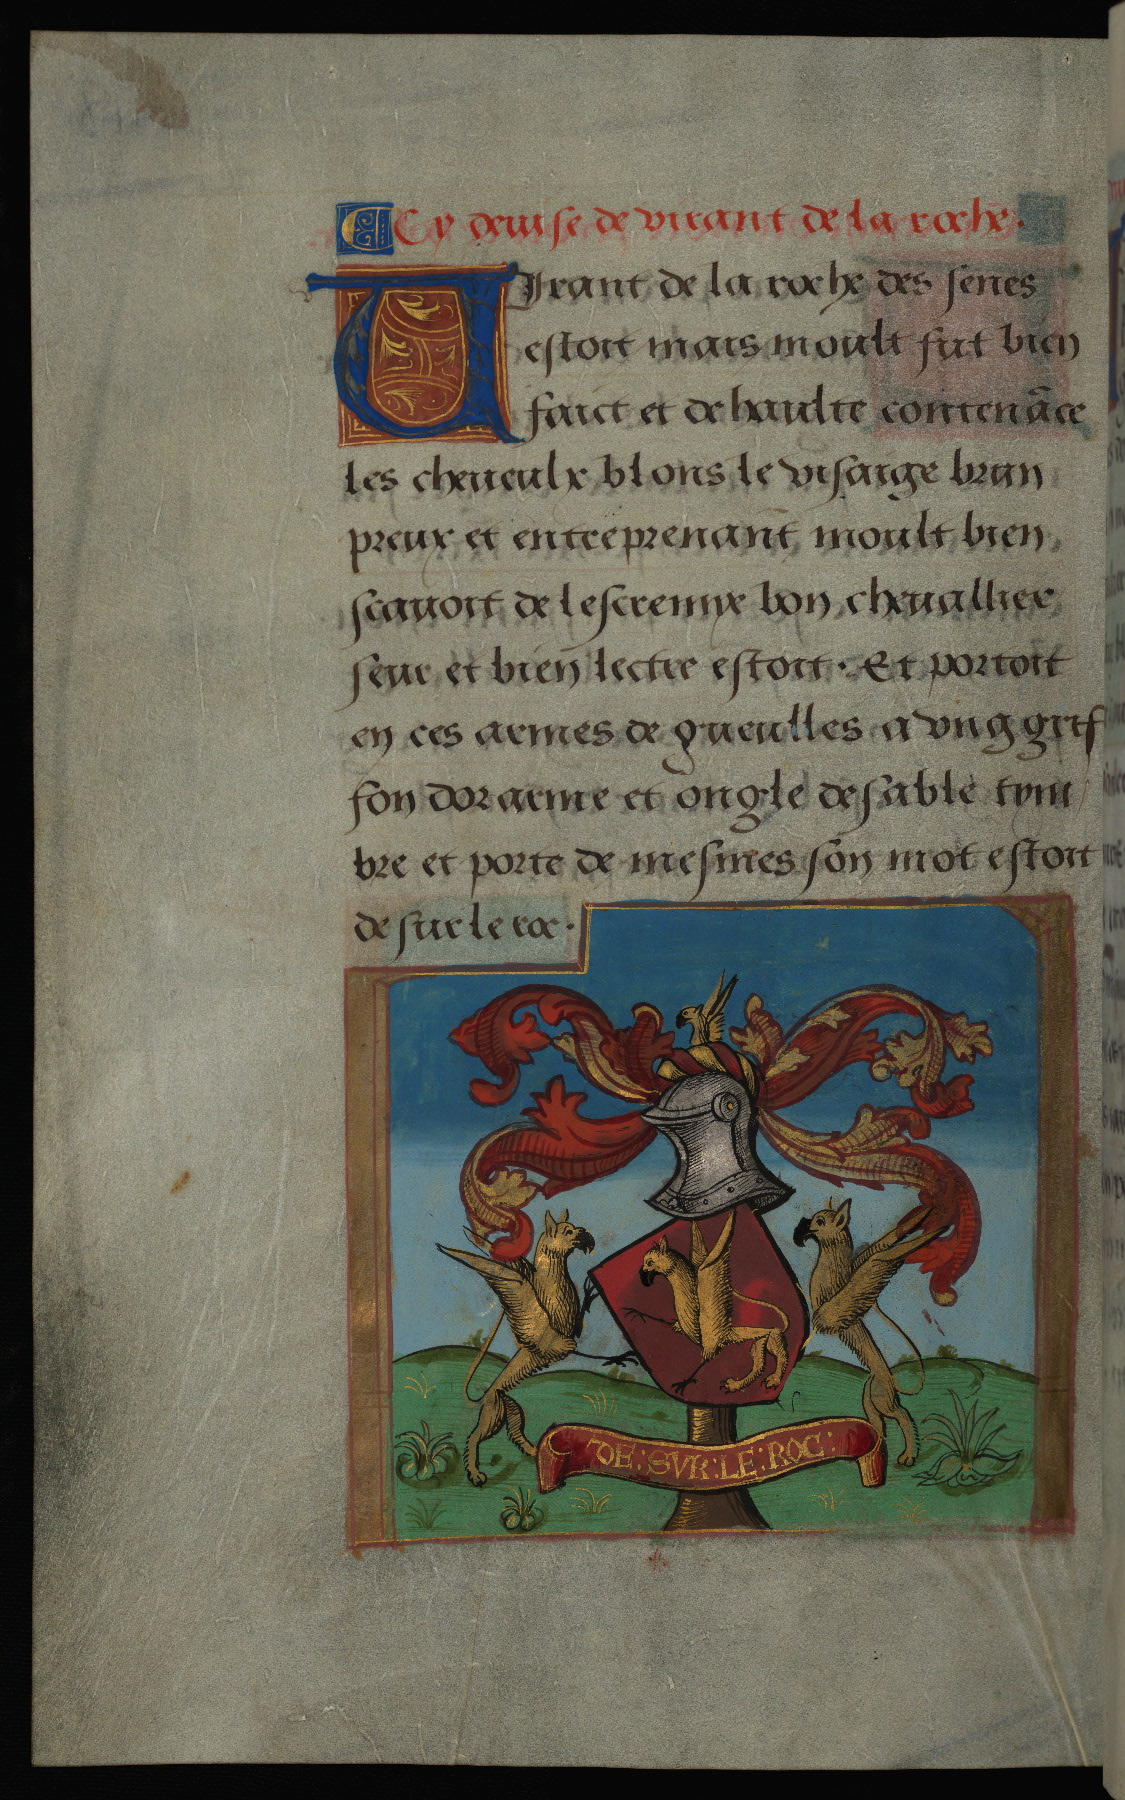 Cy deuise de virant de la roche·
Virant de la roche des senes
estoit mais moult fut bien
faict et de haulte contenāce
les cheueulx blons le visaige brun
preux et entreprenant moult bien
scauoit de lescremye bon cheuallier
seur et bien lectre estoit· Et portoit
en ces armes de gueulles a vng grif
fon dor arme et ongle de sable tym
bre et porte de mesmes son mot estoit
de sur le roc·
DE:SVR:LE:ROC: